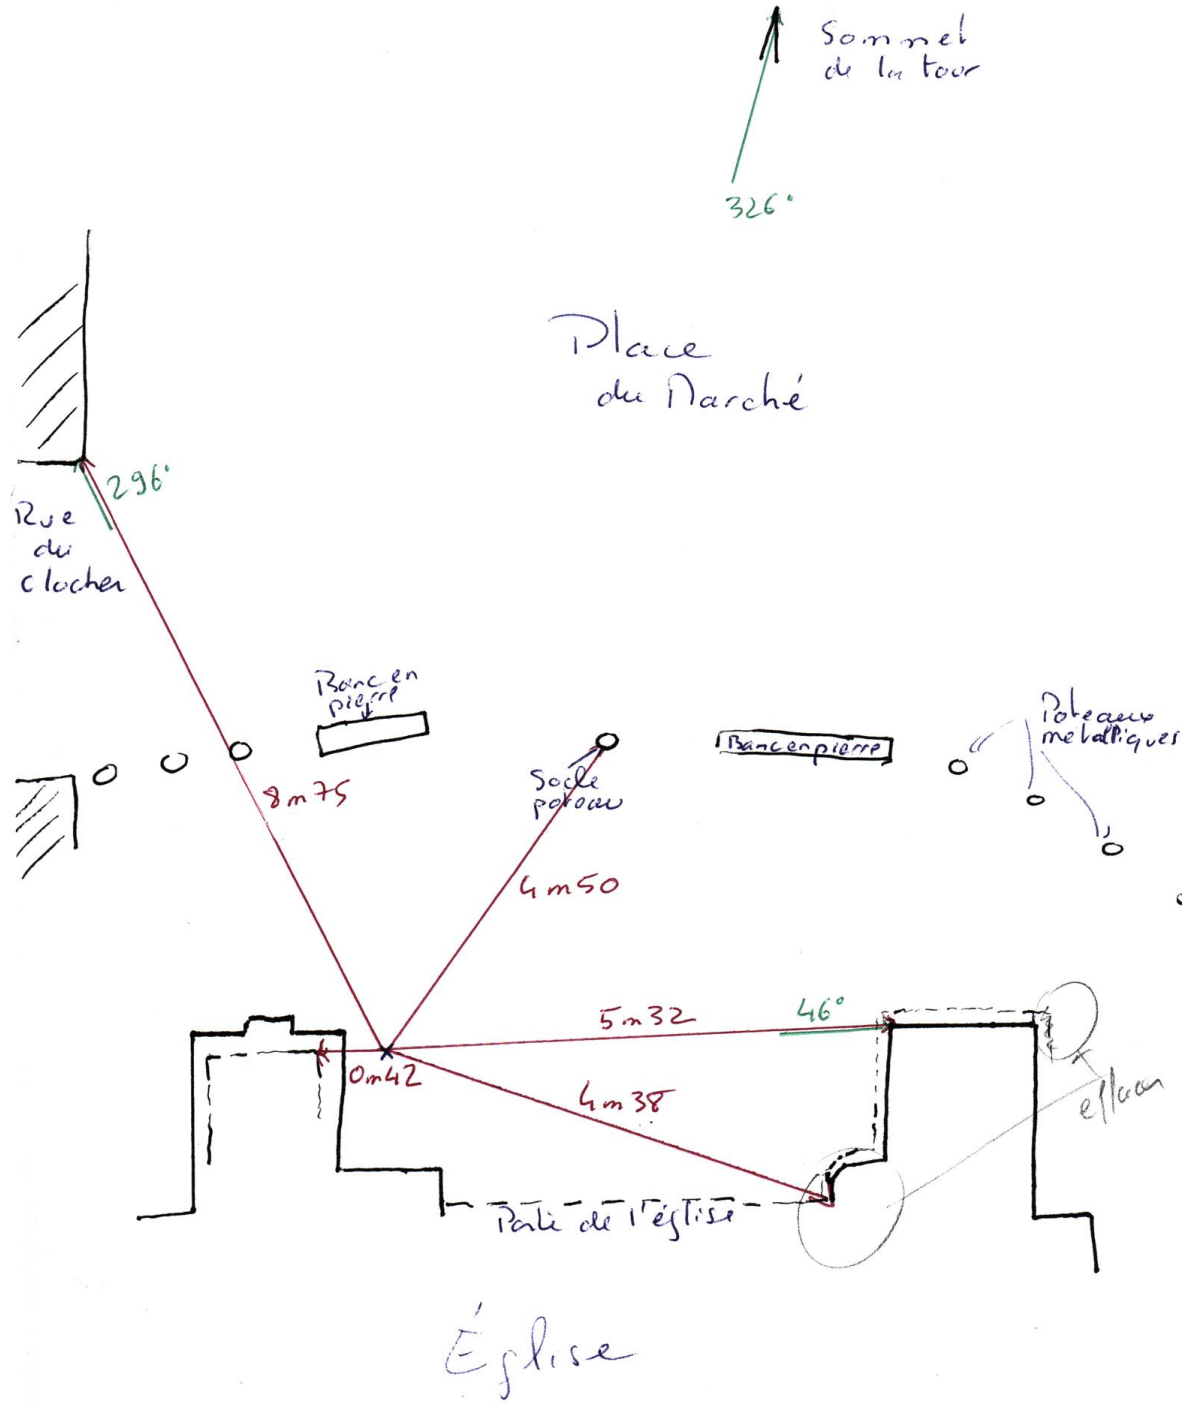 Sommet
de la tour
326°
Place
du Marché
296°
Rue
du
clocher
Banc en
pierre
Banc en pierre
Poteaux
métalliques
Socle
poteau
8m75
4m50
5m32
46°
0m42
4m38
effacer
Porte de l'église
Église